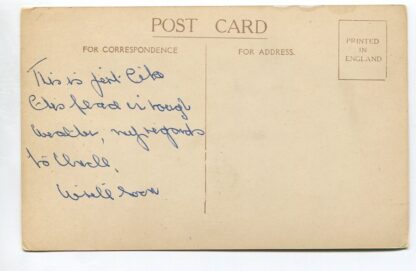 POST CARD
FOR CORRESPONDENCE
FOR ADDRESS.
PRINTED
IN
ENGLAND
This is just like
head in rough
weather, my regards
to Uncle,
soon